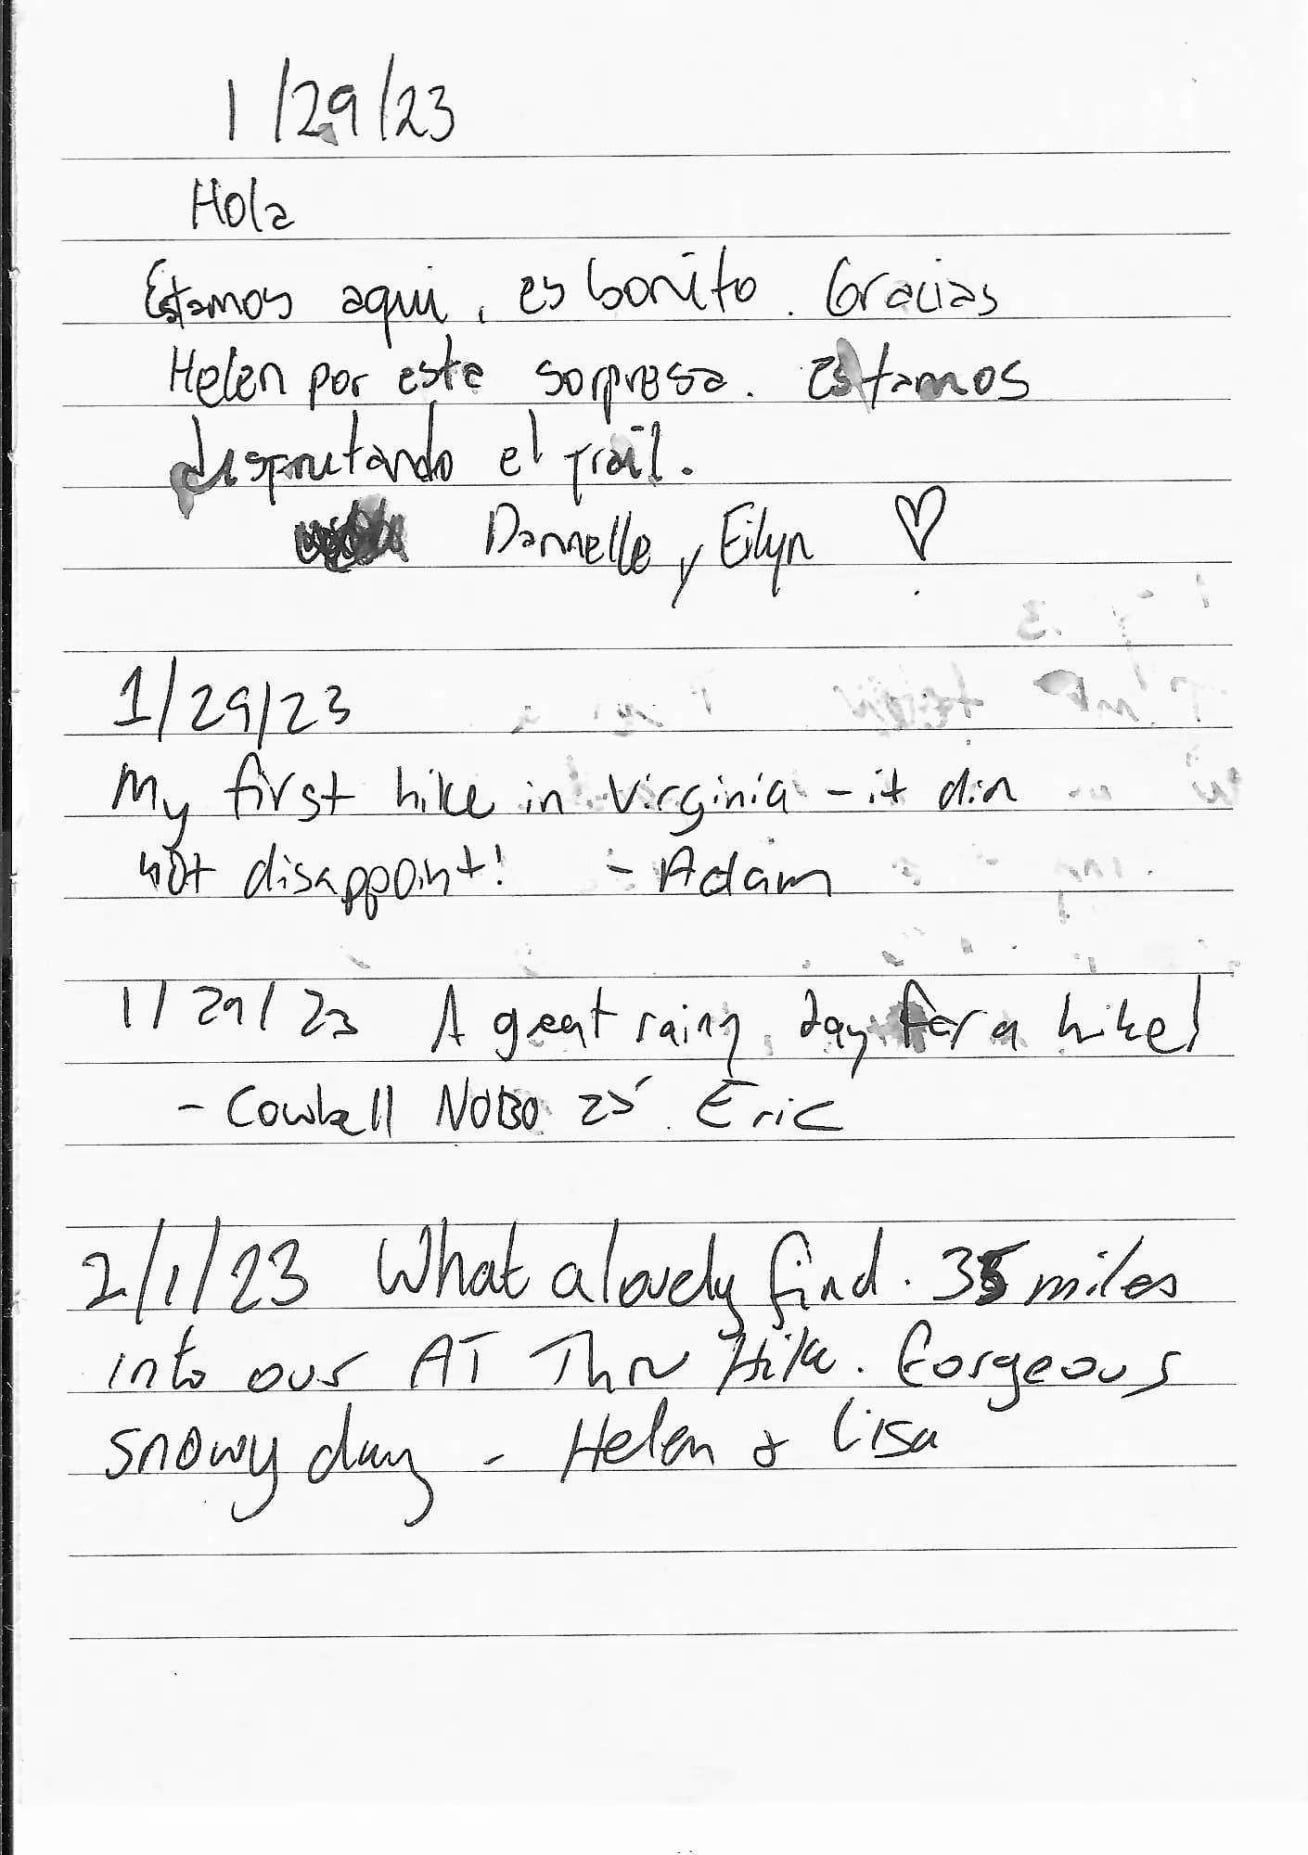 1/29/23
Hola
Estamos aqui, es bonito. Gracias
Helen por este sorpresa. Estamos
disfrutando el trail.
Dannelle y Eilyn ♡
1/29/23
My first hike in Virginia - it din
not disappoint! - Adam
1/29/23 A great rainy day for a hike!
- Cowbell NOBO 25' Eric
2/1/23 What a lovely find. 35 miles
into our AT Thru Hike. Gorgeous
snowy day - Helen & Lisa